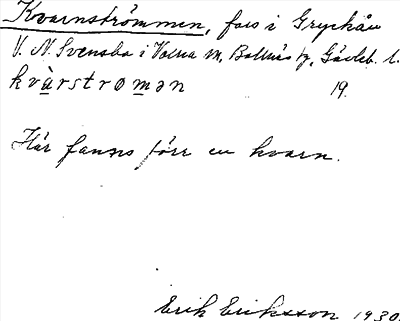 Kvarnströmmen, fors i Gryckån
V. N. Svenska i Voxna sn, Bollnäs tg, Gävleb. l.
kvàrstrømən 19
Här fanns förr en kvarn.
Erik Eriksson 1930.